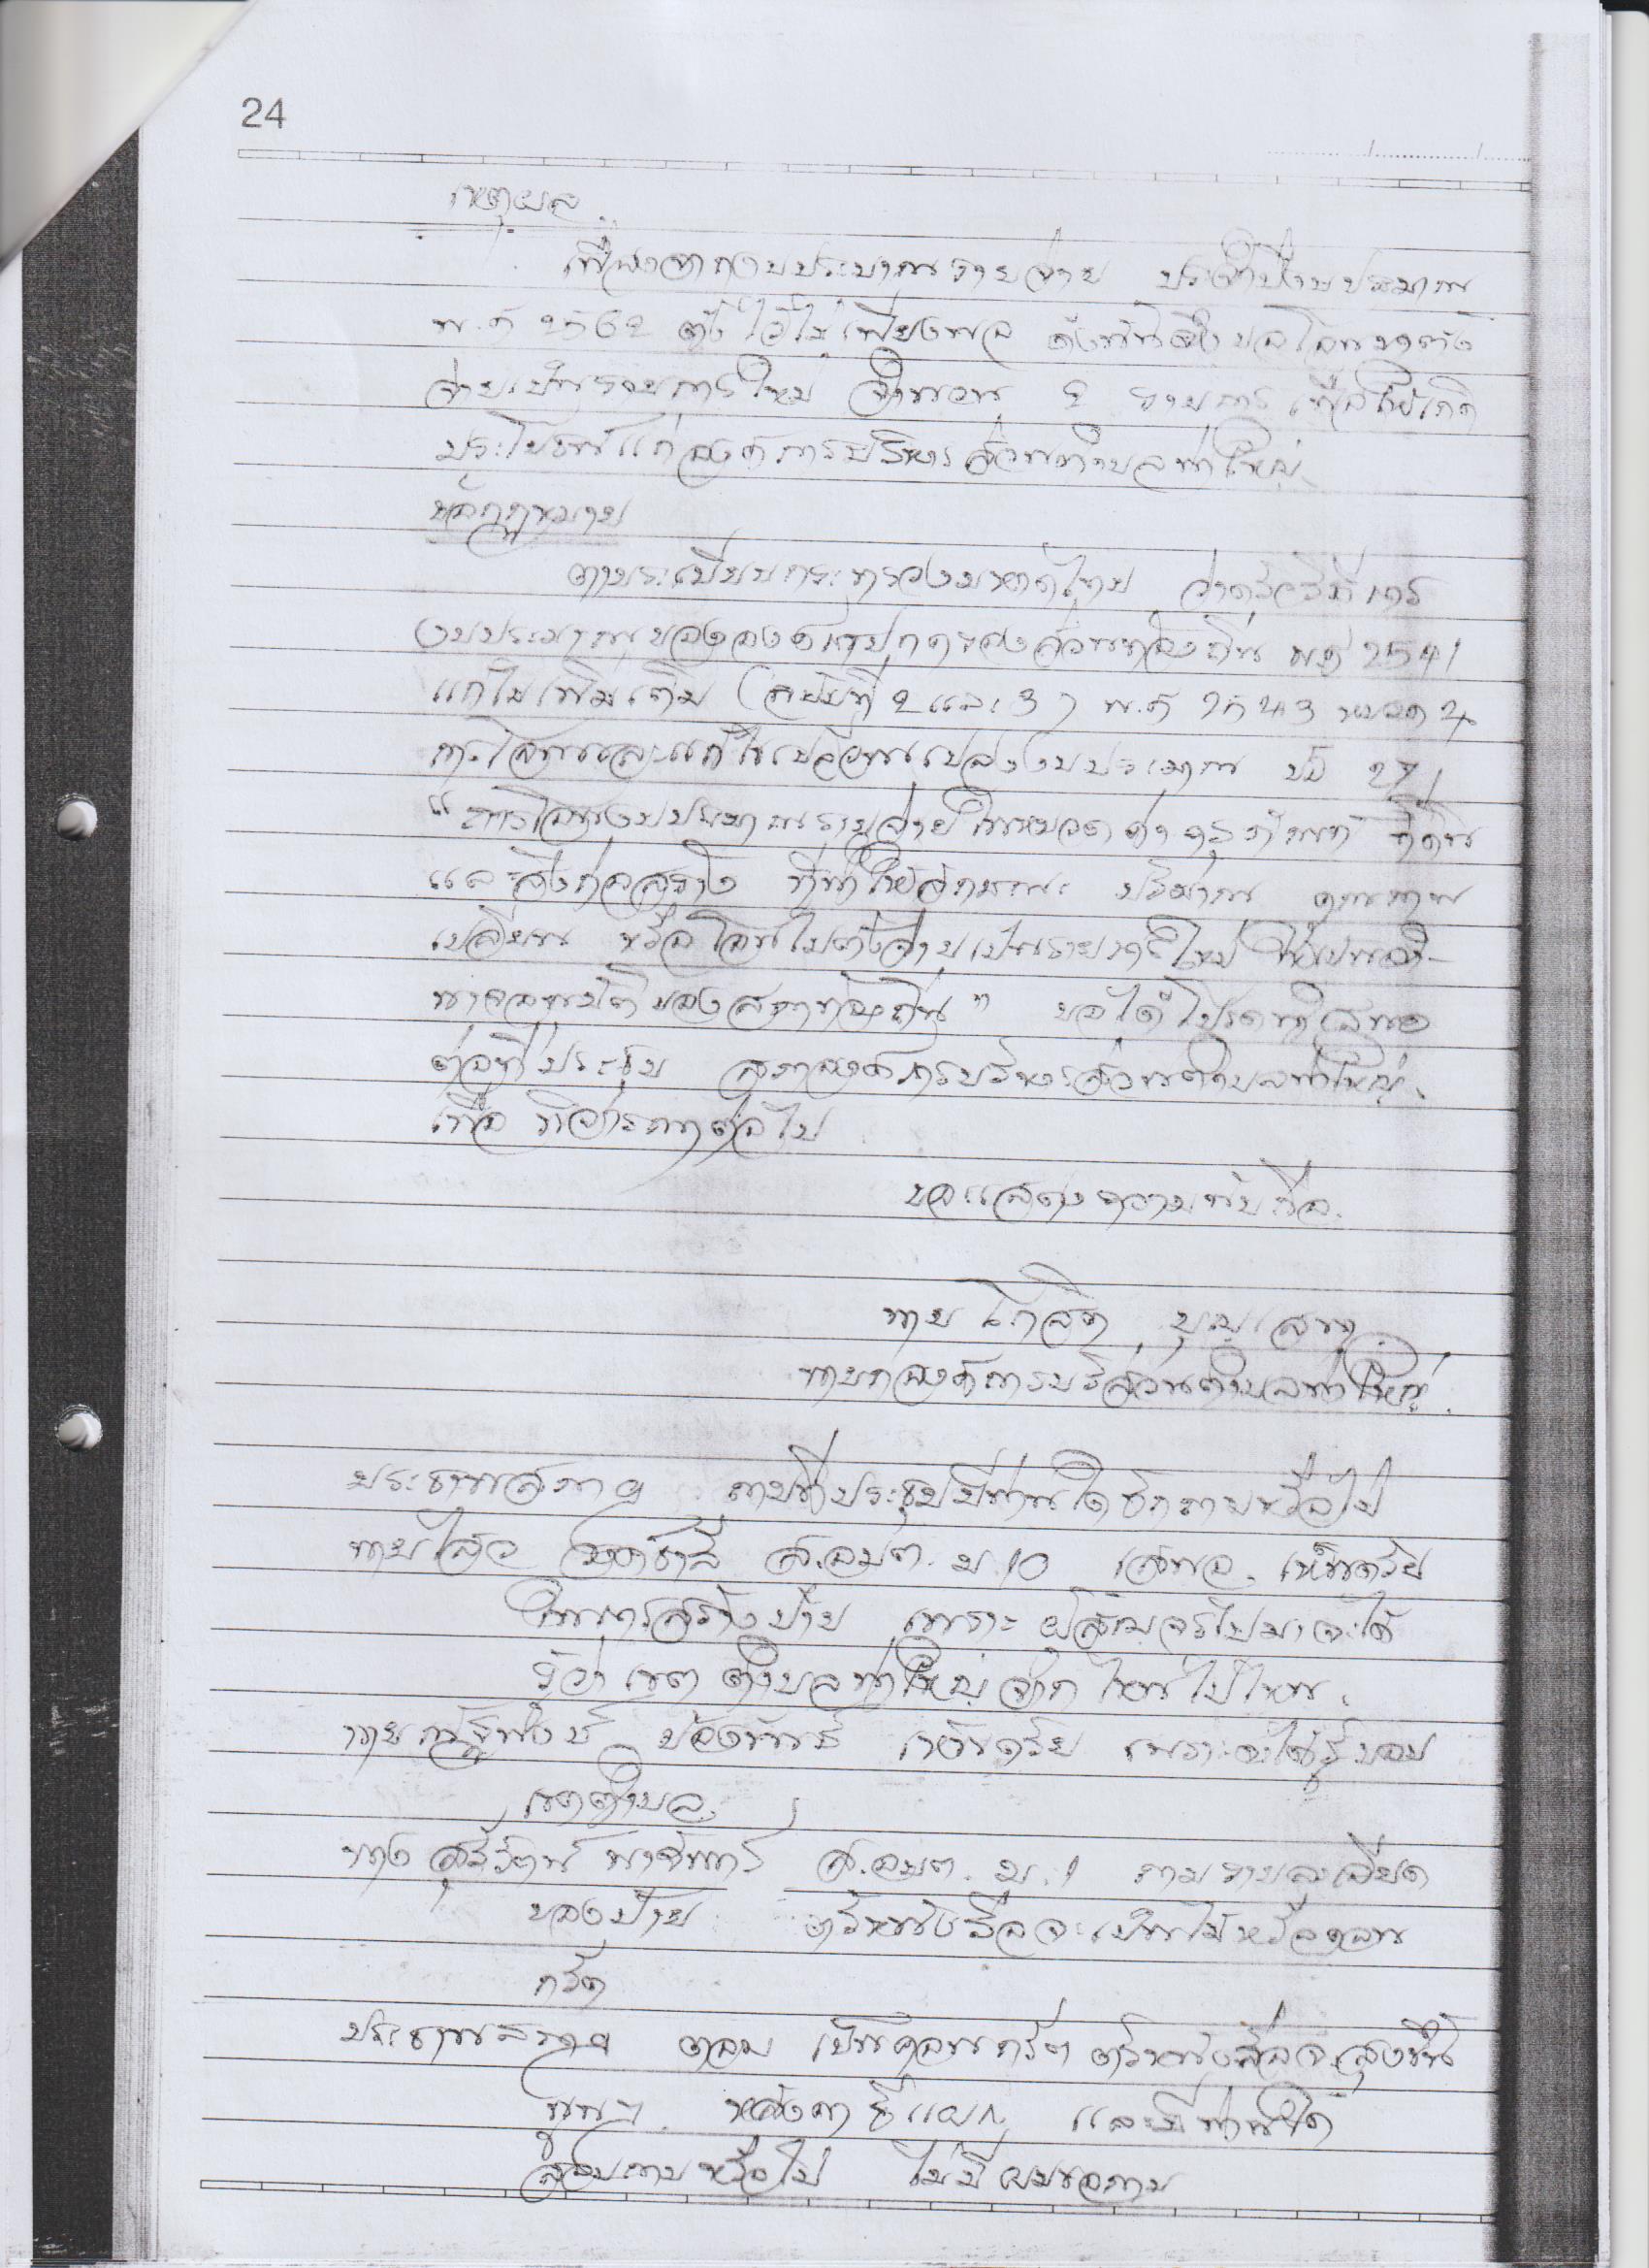 24
เหตุผล
เนื่องจากงบประมาณรายจ่าย ประจำปีงบประมาณ
พ.ศ 2562 ตั้งไว้ไม่เพียงพอ ดังนั้นจึงขอโอนมาตั้ง
จ่ายเป็นรายการใหม่ จำนวน 2 รายการ เพื่อให้เกิด
ประโยชน์แก่องค์การบริหารส่วนตำบลท่าใหญ่
ข้อกฎหมาย
ตามระเบียบกระทรวงมหาดไทย ว่าด้วยวิธีการ
งบประมาณขององค์กรปกครองส่วนท้องถิ่น พ.ศ 2541
แก้ไขเพิ่มเติม (ฉบับที่ 2 และ 3) พ.ศ 2543 หมวด 4
การโอนและแก้ไขเปลี่ยนแปลงงบประมาณ ข้อ 27
"การโอนงบประมาณรายจ่ายในหมวดค่าครุภัณฑ์ ที่ดิน
และสิ่งก่อสร้าง ที่ทำให้ลักษณะ ปริมาณ คุณภาพ
เปลี่ยน หรือโอนไปตั้งจ่ายเป็นรายการใหม่ ให้เป็นอำ-
นาจอนุมัติของสภาท้องถิ่น" ขอได้โปรดนำเสนอ
ต่อที่ประชุม สภาองค์การบริหารส่วนตำบลท่าใหญ่
เพื่อ พิจารณาต่อไป
ขอแสดงความนับถือ
นายโกสิต บุญเสนา
นายกองค์การบริส่วนตำบลท่าใหญ่
ประธานสภาฯ ถามที่ประชุมมีท่านใดซักถามหรือไม่
นายไสว ส.อบต. ม.10 เสนอ เห็นด้วย
ในการสร้างป้าย เพราะผู้สัญจรไปมาจะได้
รู้ว่า เขต ตำบลท่าใหญ่จากไหนไปไหน
นายณัฐพงษ์ ป้องพันธ์ เห็นด้วย เพราะจะได้รู้ขอบ
เขตตำบล
นาง สุรีรัตน์ นาจันทร์ ส.อบต. ม.1 ถามรายละเอียด
ของป้าย ตัวหนังสือจะเป็นไม้หรือคอน
กรีต
ประธานสภาฯ ตอบ เป็นคอนกรีต ตัวหนังสือจะสูงขึ้น
นูนๆ หลังคา และมีท่านใด
สอบถามหรือไม่ ไม่มีผู้ขอถาม